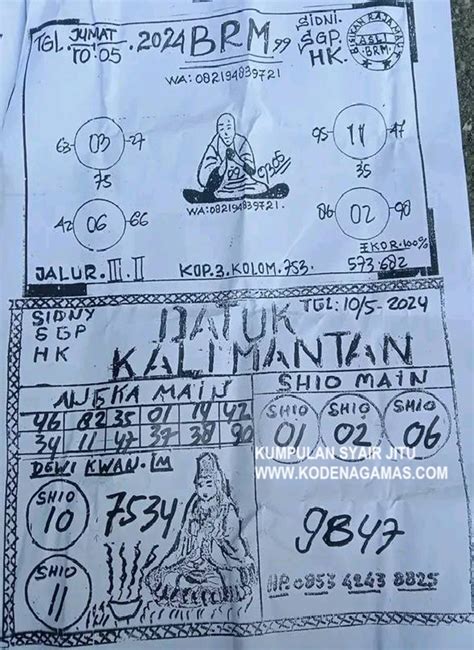 TGL. JUMAT 10.05 .2024 BRM 99
SIDNI.
SGP.
HK.
ASLI
BRM
WA: 082194839721
63 03 27
75
95 11 47
35
42 06 66
06 02 90
WA:082194839721.
EKOR.100%
JALUR.III.II KOP.3.KOLOM.753. 573.682
SIDNY
SGP
HK
DATUK
KALIMANTAN
TGL:10/5-2024
ANGKA MAIN
46 82 35 01 19 42
34 11 47 37 38 90
SHIO MAIN
SHIO 01
SHIO 02
SHIO 06
KUMPULAN SYAIR JITU
WWW.KODENAGAMAS.COM
DEWI KWAN.IM
SHIO 10
7534
SHIO 11
9847
HP.0853 4243 8825